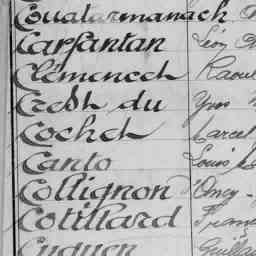 Coatarmanach
Carfantan Léon
Clémencet Raoul
Crest du Yves
Cochet Marcel
Canto Louis
Collignon Ancy-
Cotillard Franc
Cuguen Guilla